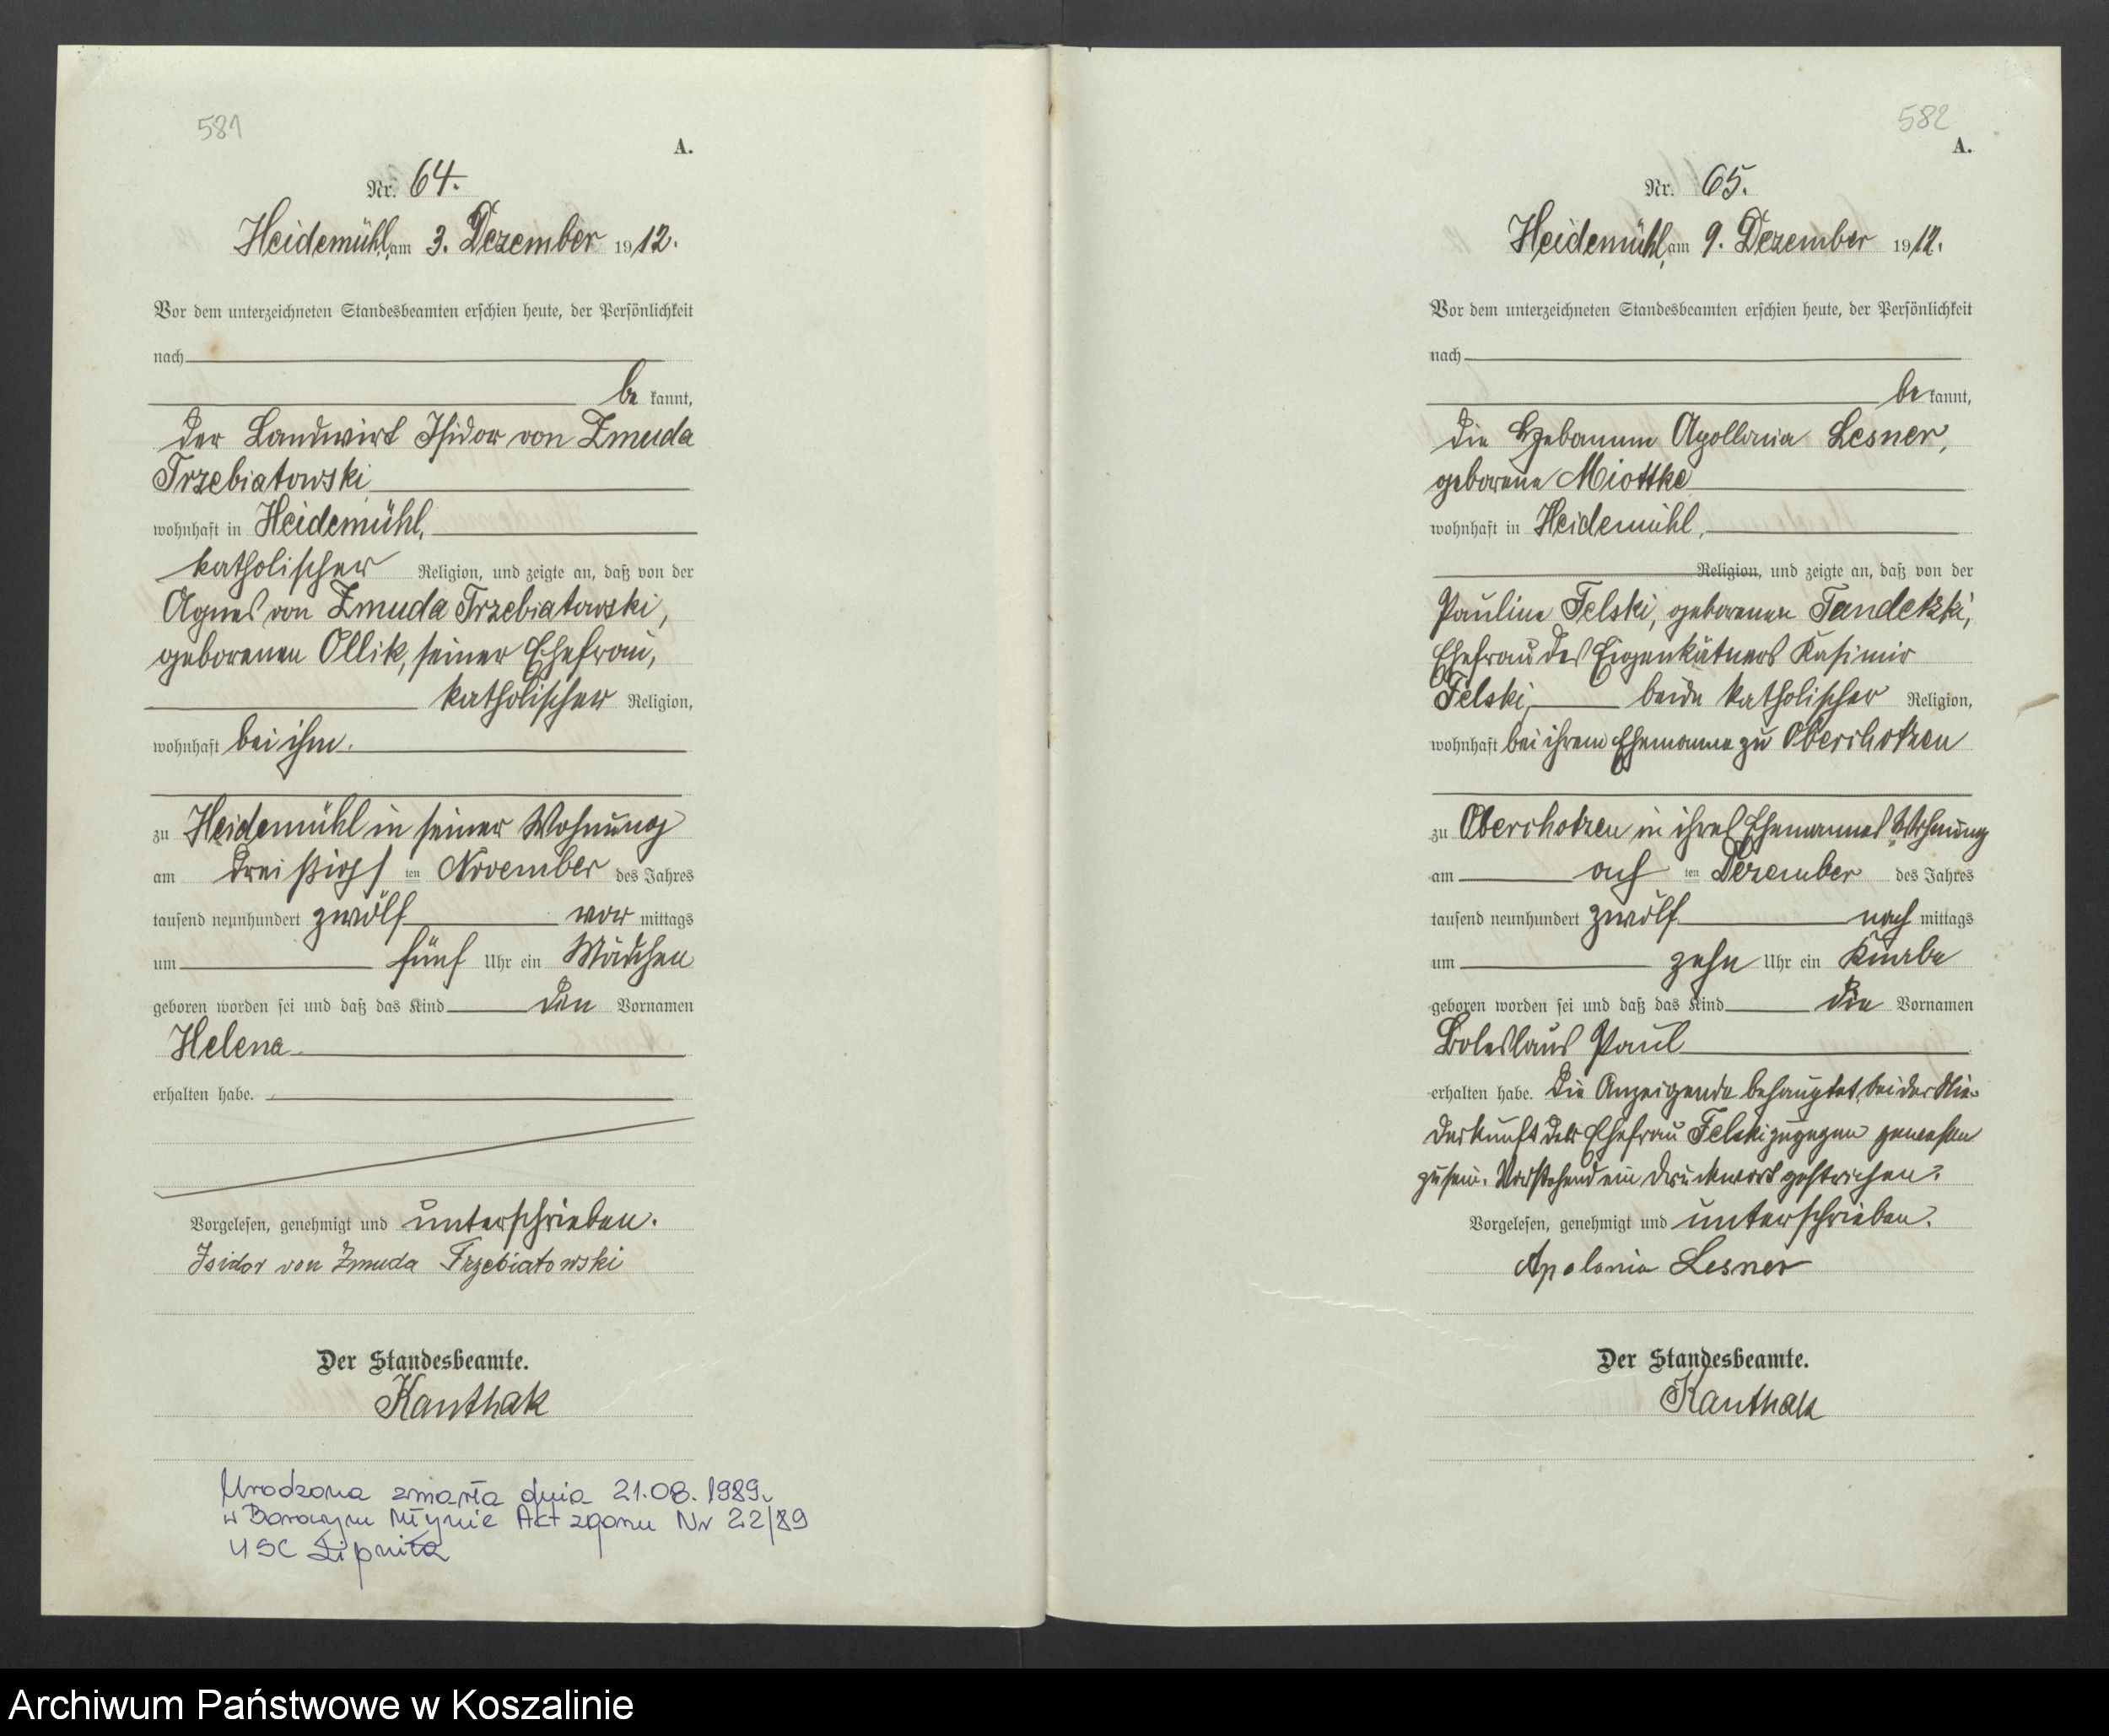 581
A.
Nr. 64.
Heidemühl, am 3. Dezember 1912.
Vor dem unterzeichneten Standesbeamten erschien heute, der Persönlichkeit
nach
be kannt,
der Landwirt Isidor von Zmuda
Trzebiatowski
wohnhaft in Heidemühl,
katholischer Religion, und zeigte an, daß von der
Agnes von Zmuda Trzebiatowski,
geborenen Ollik, seiner Ehefrau,
katholischer Religion,
wohnhaft bei ihm.
zu Heidemühl in seiner Wohnung
am dreißigsten November des Jahres
tausend neunhundert zwölf vor mittags
um fünf Uhr ein Mädchen
geboren worden sei und daß das Kind den Vornamen
Helena
erhalten habe.
Vorgelesen, genehmigt und unterschrieben.
Isidor von Zmuda Trzebiatowski
Der Standesbeamte.
Kanthak
Urodzona zmarła dnia 21.08.1989.
w Borowym Młynie Akt zgonu Nr 22/89
USC Lipnica
582
A.
Nr. 65.
Heidemühl, am 9. Dezember 1912.
Vor dem unterzeichneten Standesbeamten erschien heute, der Persönlichkeit
nach
be kannt,
die Hebamme Apollonia Lesner,
geborene Miottke
wohnhaft in Heidemühl,
Religion, und zeigte an, daß von der
Pauline Felski, geborenen Tandetzki,
Ehefrau des Eigenkätners Kasimir
Felski, beide katholischer Religion,
wohnhaft bei ihrem Ehemanne zu Oberchotzen
zu Oberchotzen in ihres Ehemannes Wohnung
am achten Dezember des Jahres
tausend neunhundert zwölf nach mittags
um zehn Uhr ein Knabe
geboren worden sei und daß das Kind die Vornamen
Boleslaus Paul
erhalten habe. Die Anzeigende behauptet, bei der Nie-
derkunft der Ehefrau Felski zugegen gewesen
zu sein. Vorstehend ein Druckwort gestrichen.
Vorgelesen, genehmigt und unterschrieben.
Apolonia Lesner
Der Standesbeamte.
Kanthak
Archiwum Państwowe w Koszalinie